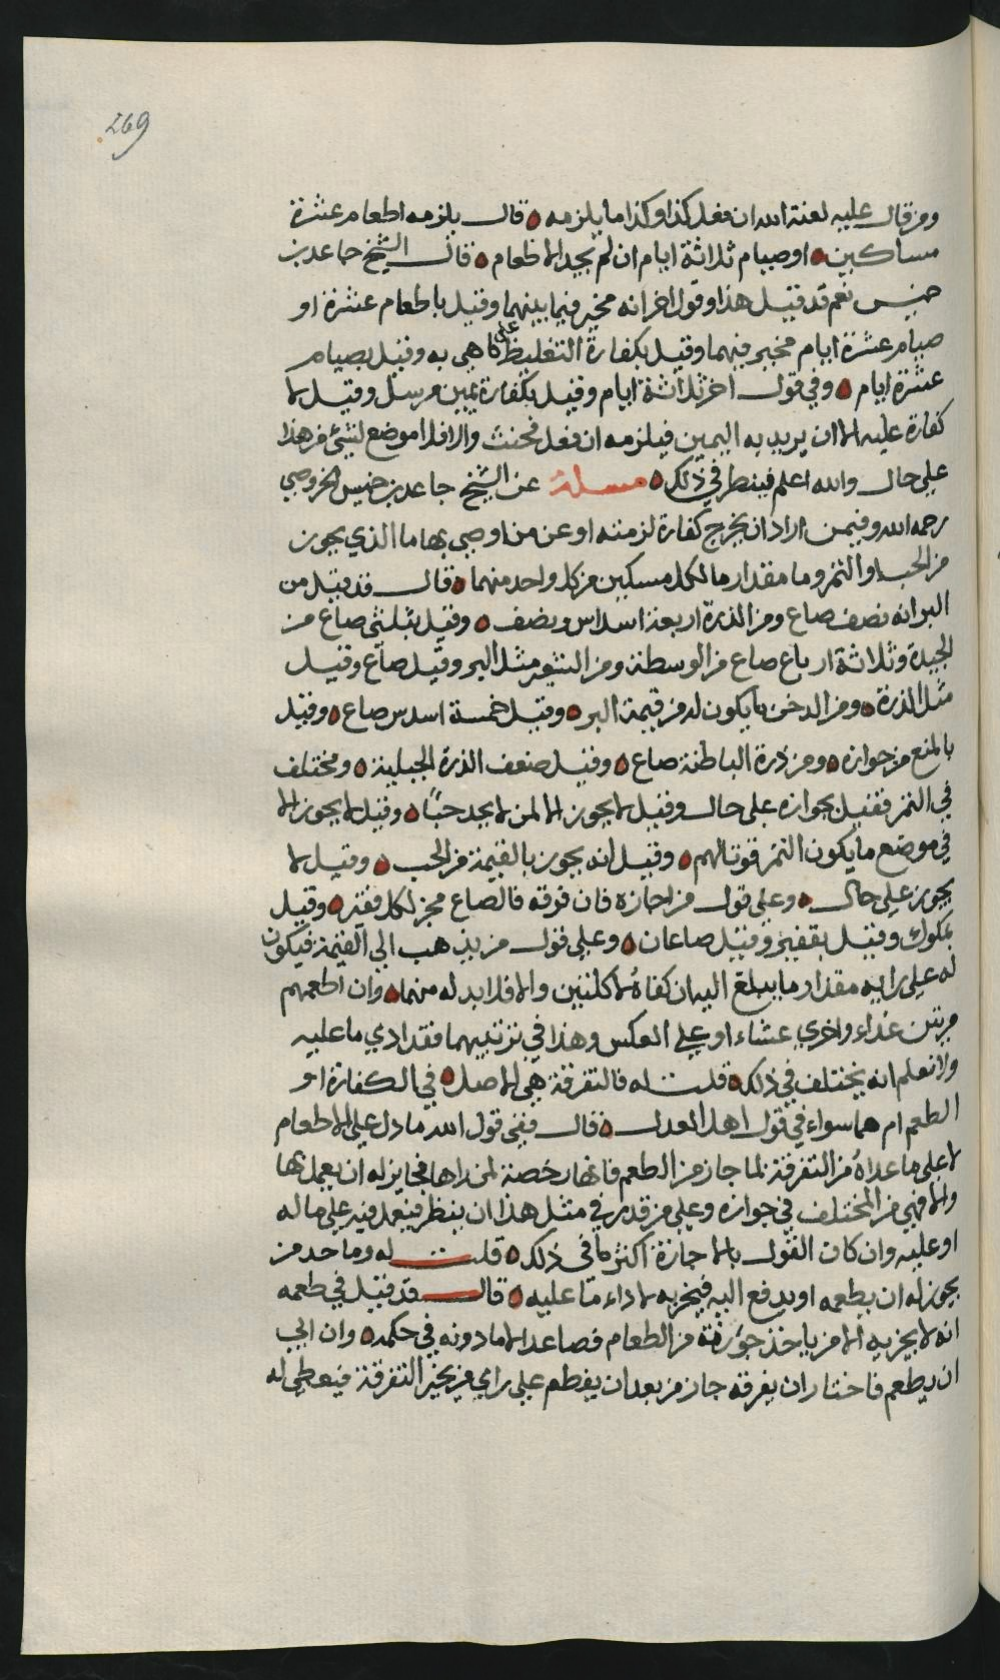 269
ومن قال عليه لعنة الله ان فعل كذا وكذا ما يلزمه ه قال يلزمه اطعام عشرة
مساكين ه او صيام ثلاثة ايام ان لم يجد الاطعام ه قال الشيخ جاعد بن
خميس نعم قد قيل هذا وقول اخر انه مخير فيما بينهما وقيل باطعام عشرة او
صيام عشرة ايام مخير فيهما وقيل بكفارة التغليظ على ما هي به وقيل بصيام
عشرة ايام ه وفي قول اخر ثلاثة ايام وقيل بكفارة يمين مرسل وقيل لا
كفارة عليه الا ان يريد به اليمين فيلزمه ان فعل فحنث والا فلا موضع لشئ من هذا
على حال والله اعلم فينظر في ذلك ه مسئلة عن الشيخ جاعد بن خميس الخروصي
رحمه الله وفيمن اراد ان يخرج كفارة لزمته او عن من اوصى بها ما الذي يجوز
من الحب او التمر وما مقدار ما لكل مسكين من كل واحد منهما ه قال قد قيل من
البر انه نصف صاع ومن الذرة اربعة اسداس ونصف ه وقيل بثلثي صاع من
الجيدة وثلاثة ارباع صاع من الوسطة ومن الشعير مثل البر وقيل صاع وقيل
مثل الذرة ه ومن الدخن ما يكون له من قيمة البر ه وقيل خمسة اسدس صاع ه وقيل
بالمنع من جوازه ه ومن ذرة الباطنة صاع ه وقيل ضعف الذرة الجبلية ه ومختلف
في التمر فقيل بجوازه على حال وقيل لا يجوز الا لمن لا يجد حبًا ه وقيل لا يجوز الا
في موضع ما يكون التمر قوتا لهم ه وقيل انه يجوز بالقيمة من الحب ه وقيل لا
يجوز على حال ه وعلى قول من اجازه فان فرقه فالصاع مجز لكل فقير ه وقيل
بمكوك وقيل بقفيز وقيل صاعان ه وعلى قول من يذهب الى القيمة فيكون
له على رايه مقدار ما يبلغ اليه ان كفاه لاكلتين والا فلا بد له منهما ه وان اطعمهم
مرتين غداء واخرى عشاء او على العكس وهذا في ترتيبهما فقد ادى ما عليه
ولا نعلم انه يختلف في ذلك ه قلت له فالتفرقة هي الاصل ه في الكفارة او
الطعم ام هما سواء في قول اهل العدل ه قال ففي قول الله ما دل على الاطعام
لا على ما عداه من التفرقة لما جاز من الطعم فانها رخصة لمن راها فجايز له ان يعمل بها
والا فهي من المختلف في جوازه وعلى من قدر في مثل هذا ان ينظر فيعمل فيه على ما له
او عليه وان كان القول بالاجازة اكثر ما في ذلك ه قلت له وما حد من
يجوز له ان يطعمه او يدفع اليه فيجزيه لاداء ما عليه ه قال قد قيل في طعمه
انه لا يجزيه الا من ياخذ حوزته من الطعام فصاعدا لا ما دونه في حكمه ه وان ابى
ان يطعم فاختار ان يفرقه جاز من بعد ان يفطم على راي من يجيز التفرقة فيعطي له